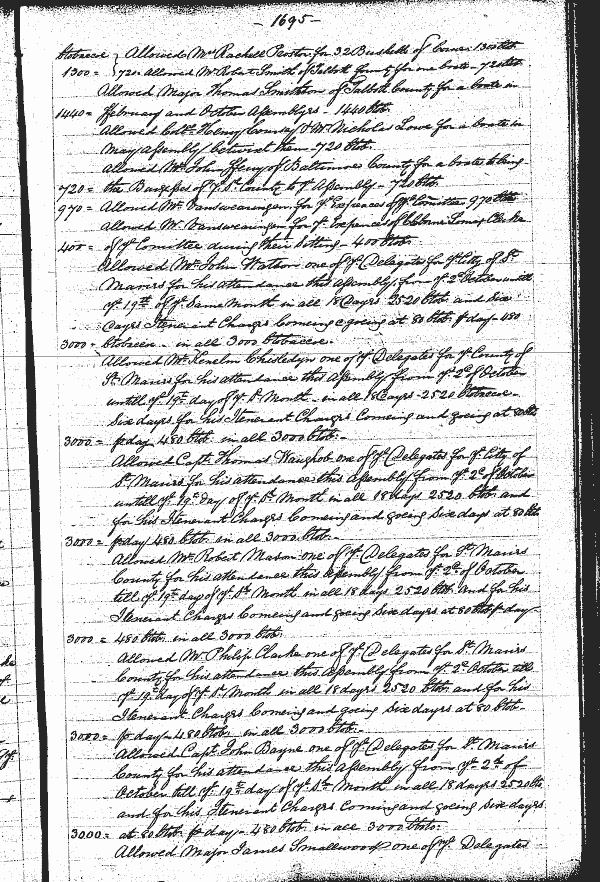 - 1695 -
tobaccoe } Allowed Mrs Rachell Proctor for 32 Bushells of Corne - 1300 tob
1300 = { 720 - Allowed Mr Robert Smith of Talbott County for one boate - 720 tob
Allowed Major Thomas Smithson of Talbott County for a boate in
1440 = ffebruary and October Assemblyes - 1440 tob.
Allowed Collo Henry Coursey & Mr Nicholas Lowe for a boate in
May Assembly betwixt them - 720 tob.
Allowed Mr John fferry of Baltimore County for a boate to bring
720 = the Burgesses of ye sd. County to ye Assembly - 720 tob.
970 = Allowed Mr. Vansweringen for ye Expences of ye Comittee 970 tob
Allowed Mr. Vansweringen for ye Expences of Clarke
400 = of ye Comittee during their Sitting - 400 tob.
Allowed Mr John Watson one of ye Delegates for ye City of St
Maries for his attendance this Assembly from ye 2d October untill
ye 19th of ye Same Month in all 18 Dayes 2520 tob. and Six
dayes Itenerant Charges Comeing & going at 80 tob. p day - 480
3000 = tobaccoe - in all 3000 tobaccoe.
Allowed Mr. Kenelm Cheseldyn one of ye Delegates for ye County of
St. Maries for his attendance this Assembly from ye 2d of October
untill ye 19th day of ye sd Month - in all 18 Dayes - 2520 tobaccoe -
Six dayes for his Itenerant Charges Comeing and going at 80 tob
3000 = p day 480 tob. in all 3000 tob. -
Allowed Capt. Thomas Waughob one of ye Delegates for ye City of
St. Maries for his attendance this Assembly from ye 2d of October
untill ye 19th day of ye sd Month in all 18 dayes 2520 tob. and
for his Itenerant Charges Comeing and going Six dayes at 80 tob.
3000 = p day 480 tob. in all 3000 tob. -
Allowed Mr. Robert Mason one of ye Delegates for St. Maries
County for his attendance this Assembly from ye 2d of October
till ye 19th day of ye sd Month in all 18 dayes 2520 tob and for his
Itenerant Charges Comeing and going Six dayes at 80 tob p day -
3000 = 480 tob. in all 3000 tob.
Allowed Mr Philip Clarke one of ye Delegates for St. Maries
County for his attendance this Assembly from ye 2d October till
ye 19th day of ye sd Month in all 18 dayes 2520 tob. and for his
Itenerant Charges Comeing and going Six dayes at 80 tob.
3000 = p day - 480 tob. in all 3000 tob. -
Allowed Capt. John Bayne one of ye Delegates for St Maries
County for his attendance this Assembly from ye 2d of
October till ye 19th day of ye sd Month in all 18 dayes 2520 tob
and for his Itenerant Charges Comeing and going Six dayes
3000 = at 80 tob. p day - 480 tob. in all 3000 tob. -
Allowed Major James Smallwood one of ye Delegates